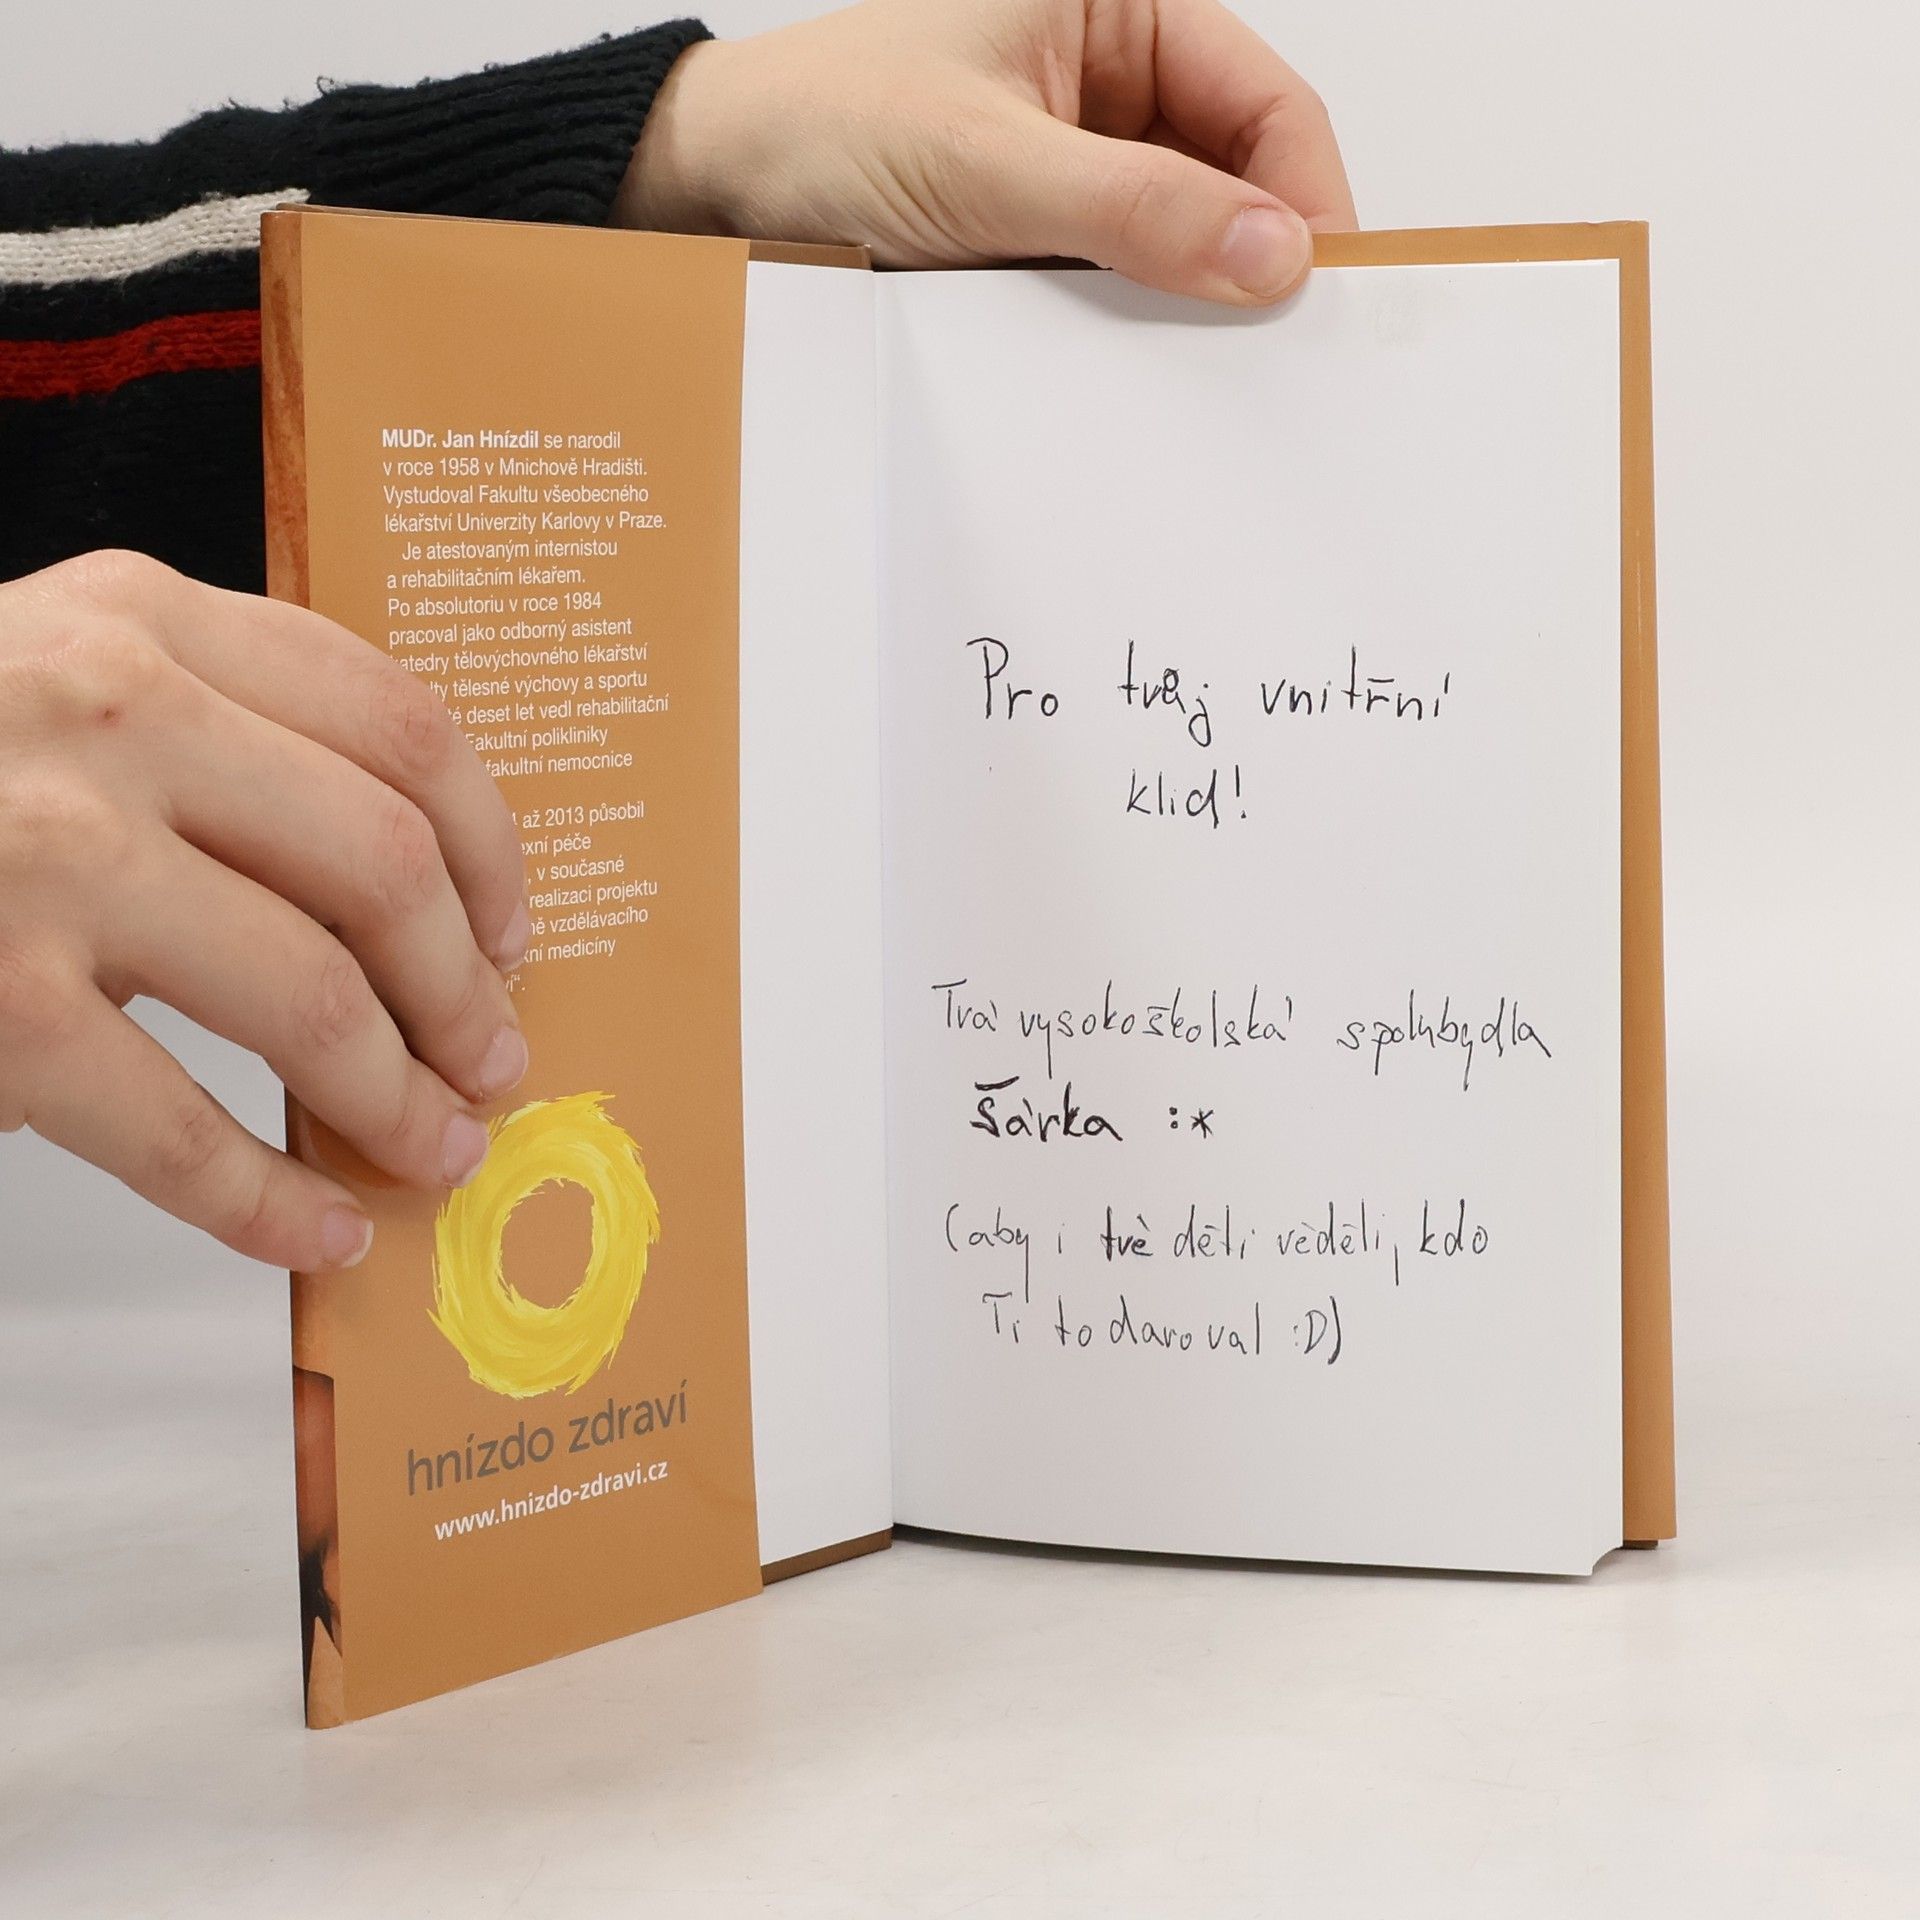 MUDr. Jan Hnízdil se narodil
v roce 1958 v Mnichově Hradišti.
Vystudoval Fakultu všeobecného
lékařství Univerzity Karlovy v Praze.
Je atestovaným internistou
a rehabilitačním lékařem.
Po absolutoriu v roce 1984
pracoval jako odborný asistent
katedry tělovýchovného lékařství
tělesné výchovy a sportu
deset let vedl rehabilitační
Fakultní polikliniky
fakultní nemocnice
až 2013 působil
péče
, v současné
realizaci projektu
vzdělávacího
medicíny
hnízdo zdraví
www.hnizdo-zdravi.cz
Pro tvůj vnitřní
klid!
Tvá vysokoškolská spolubydla
Šárka :*
(aby i tvé děti věděli, kdo
Ti to daroval :D)